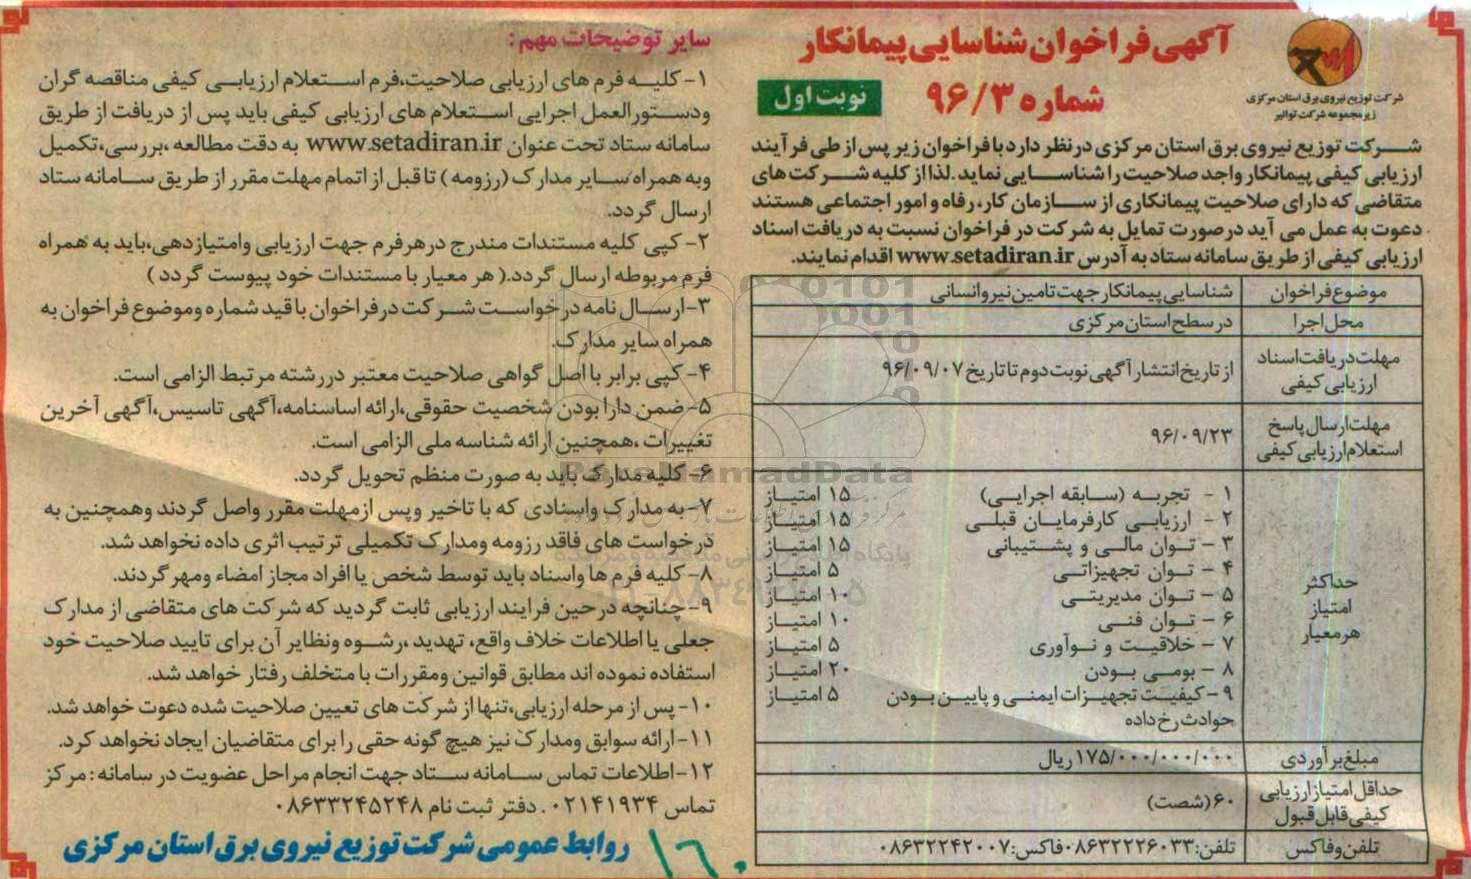 آگهی فراخوان شناسایی پیمانکار
شماره ۹۶/۳
نوبت اول
شرکت توزیع نیروی برق استان مرکزی
زیرمجموعه شرکت توانیر
شرکت توزیع نیروی برق استان مرکزی درنظر دارد با فراخوان زیر پس از طی فرآیند
ارزیابی کیفی پیمانکار واجد صلاحیت را شناسایی نماید.لذا از کلیه شرکت های
متقاضی که دارای صلاحیت پیمانکاری از سازمان کار، رفاه و امور اجتماعی هستند
دعوت به عمل می آید درصورت تمایل به شرکت در فراخوان نسبت به دریافت اسناد
ارزیابی کیفی از طریق سامانه ستاد به آدرس www.setadiran.ir اقدام نمایند.
موضوع فراخوان شناسایی پیمانکار جهت تامین نیروانسانی
محل اجرا در سطح استان مرکزی
مهلت دریافت اسناد
ارزیابی کیفی
از تاریخ انتشار آگهی نوبت دوم تا تاریخ ۹۶/۰۹/۰۷
مهلت ارسال پاسخ
استعلام ارزیابی کیفی
۹۶/۰۹/۲۳
حداکثر
امتیاز
هرمعیار
۱ - تجربه (سابقه اجرایی) ۱۵ امتیاز
۲ - ارزیابی کارفرمایان قبلی ۱۵ امتیاز
۳ - توان مالی و پشتیبانی ۱۵ امتیاز
۴ - توان تجهیزاتی ۵ امتیاز
۵ - توان مدیریتی ۱۰ امتیاز
۶ - توان فنی ۱۰ امتیاز
۷ - خلاقیت و نوآوری ۵ امتیاز
۸ - بومی بودن ۲۰ امتیاز
۹ - کیفیت تجهیزات ایمنی و پایین بودن ۵ امتیاز
حوادث رخ داده
مبلغ برآوردی ۱۷۵/۰۰۰/۰۰۰/۰۰۰ ریال
حداقل امتیاز ارزیابی
کیفی قابل قبول
۶۰ (شصت)
تلفن وفاکس تلفن:۰۸۶۳۲۲۲۶۰۳۳ فاکس:۰۸۶۳۲۲۴۲۰۰۷
سایر توضیحات مهم:
۱- کلیه فرم های ارزیابی صلاحیت،فرم استعلام ارزیابی کیفی مناقصه گران
ودستورالعمل اجرایی استعلام های ارزیابی کیفی باید پس از دریافت از طریق
سامانه ستاد تحت عنوان www.setadiran.ir به دقت مطالعه ،بررسی،تکمیل
وبه همراه سایر مدارک (رزومه) تا قبل از اتمام مهلت مقرر از طریق سامانه ستاد
ارسال گردد.
۲- کپی کلیه مستندات مندرج درهرفرم جهت ارزیابی وامتیازدهی،باید به همراه
فرم مربوطه ارسال گردد.( هر معیار با مستندات خود پیوست گردد )
۳-ارسال نامه درخواست شرکت درفراخوان با قید شماره وموضوع فراخوان به
همراه سایر مدارک.
۴- کپی برابر با اصل گواهی صلاحیت معتبر دررشته مرتبط الزامی است.
۵-ضمن دارا بودن شخصیت حقوقی،ارائه اساسنامه،آگهی تاسیس،آگهی آخرین
تغییرات ،همچنین ارائه شناسه ملی الزامی است.
۶- کلیه مدارک باید به صورت منظم تحویل گردد.
۷-به مدارک واسنادی که با تاخیر وپس ازمهلت مقرر واصل گردند وهمچنین به
درخواست های فاقد رزومه ومدارک تکمیلی ترتیب اثری داده نخواهد شد.
۸- کلیه فرم ها واسناد باید توسط شخص یا افراد مجاز امضاء ومهر گردند.
۹-چنانچه درحین فرایند ارزیابی ثابت گردید که شرکت های متقاضی از مدارک
جعلی یا اطلاعات خلاف واقع، تهدید ،رشوه ونظایر آن برای تایید صلاحیت خود
استفاده نموده اند مطابق قوانین ومقررات با متخلف رفتار خواهد شد.
۱۰- پس از مرحله ارزیابی،تنها از شرکت های تعیین صلاحیت شده دعوت خواهد شد.
۱۱-ارائه سوابق ومدارک نیز هیچ گونه حقی را برای متقاضیان ایجاد نخواهد کرد.
۱۲-اطلاعات تماس سامانه ستاد جهت انجام مراحل عضویت در سامانه : مرکز
تماس ۰۲۱۴۱۹۳۴ . دفتر ثبت نام ۰۸۶۳۳۲۴۵۲۴۸
روابط عمومی شرکت توزیع نیروی برق استان مرکزی
۱۶۰
ParsNamadData